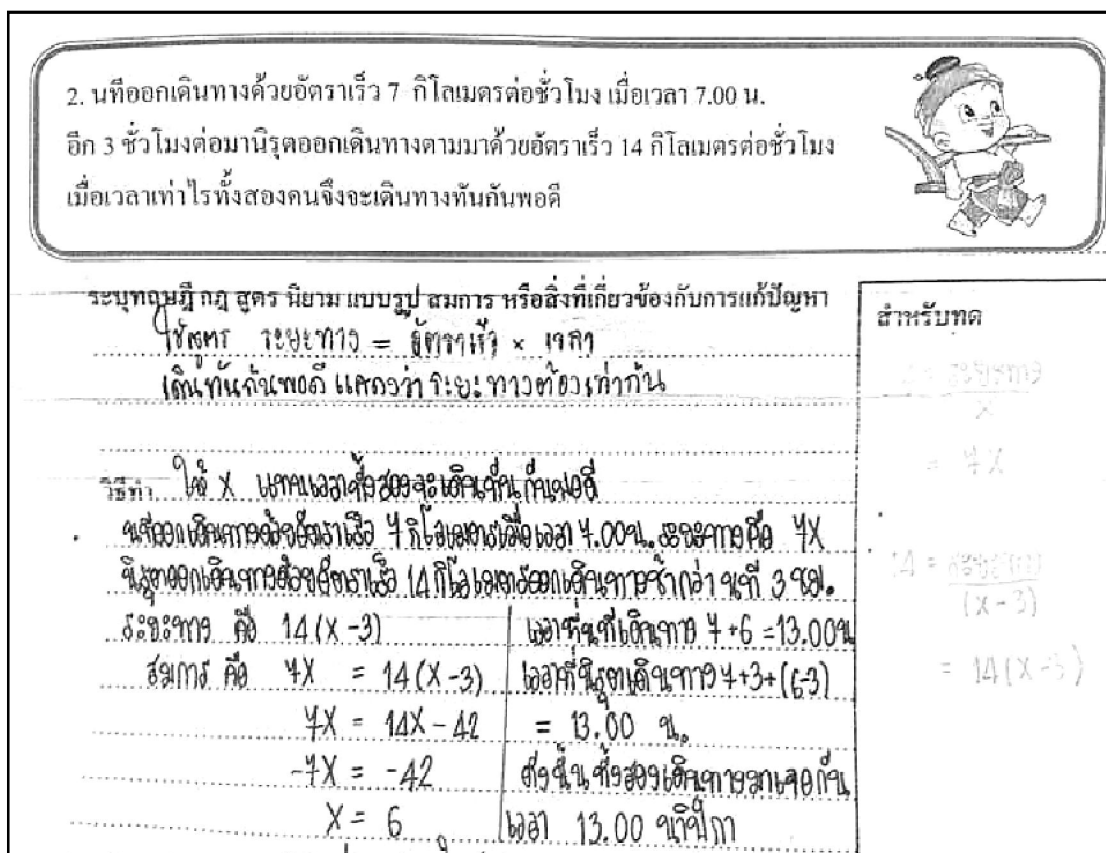 2. นทีออกเดินทางด้วยอัตราเร็ว 7 กิโลเมตรต่อชั่วโมง เมื่อเวลา 7.00 น.
อีก 3 ชั่วโมงต่อมานิรุตออกเดินทางตามมาด้วยอัตราเร็ว 14 กิโลเมตรต่อชั่วโมง
เมื่อเวลาเท่าไรทั้งสองคนจึงจะเดินทางทันกันพอดี
ระบุทฤษฎี กฎ สูตร นิยาม แบบรูป สมการ หรือสิ่งที่เกี่ยวข้องกับการแก้ปัญหา
ใช้สูตร ระยะทาง = อัตราเร็ว × เวลา
เดินทันกันพอดี แสดงว่า ระยะทางต้องเท่ากัน
วิธีทำ ให้ X แทนเวลาทั้งสองจะเดินทันกันพอดี
นทีออกเดินทางด้วยอัตราเร็ว 7 กิโลเมตรเมื่อเวลา 7.00น. ระยะทางคือ 7X
นิรุตออกเดินทางด้วยอัตราเร็ว 14 กิโลเมตรออกเดินทางช้ากว่า นที 3 ชม.
ระยะทาง คือ 14(X-3)
สมการ คือ 7X = 14(X-3)
7X = 14X - 42
-7X = -42
X = 6
เวลาที่นทีเดินทาง 7+6 =13.00น
เวลาที่นิรุตเดินทาง 7+3+(6-3)
= 13.00 น.
ดังนั้น ทั้งสองเดินทางมาเจอกัน
เวลา 13.00 นาฬิกา
สำหรับทด
ระยะทาง
X
= 7X
14 = ระยะทาง
(X-3)
= 14(X-3)